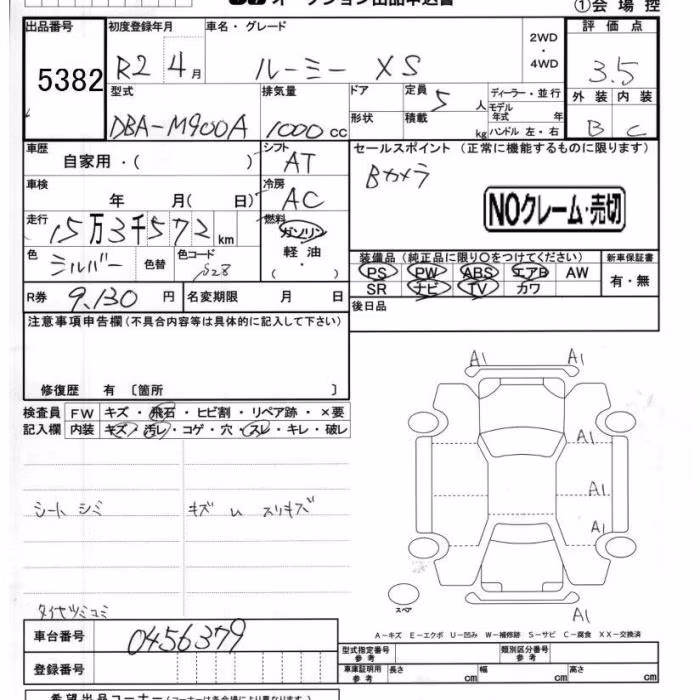 オークション出品申込書
①会場控
出品番号 初度登録年月 車名・グレード 2WD・4WD 評価点
5382 R2 4月 ルーミー XS 3.5
型式 排気量 ドア 定員 5人 ディーラー・並行 外装 内装
モデル年式 年
DBA-M900A 1000cc 形状 積載 kg ハンドル 左・右 B C
車歴 シフト セールスポイント (正常に機能するものに限ります)
自家用・( ) AT Bカメラ
車検 冷房
年 月( 日) AC NOクレーム・売切
走行 燃料
15万3千572km ガソリン
色 色替 色コード 軽油 装備品 (純正品に限り○をつけてください) 新車保証書
シルバー S28 ( ・ ) PS PW ABS エアB AW 有・無
R券 9,130円 名変期限 月 日 SR ナビ TV カワ
後日品
注意事項申告欄(不具合内容等は具体的に記入して下さい)
修復歴 有 〔箇所 〕
検査員 FW キズ・飛石・ヒビ割・リペア跡・×要
記入欄 内装 キズ・汚レ・コゲ・穴・スレ・キレ・破レ
A1 A1
A1
シート シミ キズ いスリキズ A1
A1
タイヤツミコミ スペア A1
A−キズ E−エクボ U−凹み W−補修跡 S−サビ C−腐食 XX−交換済
車台番号 0456379
型式指定番号 参考 類別区分番号 参考
登録番号 車庫証明用 参考 長さ cm 幅 cm 高さ cm
希望出品コーナー(コーナーは各会場により異なります)